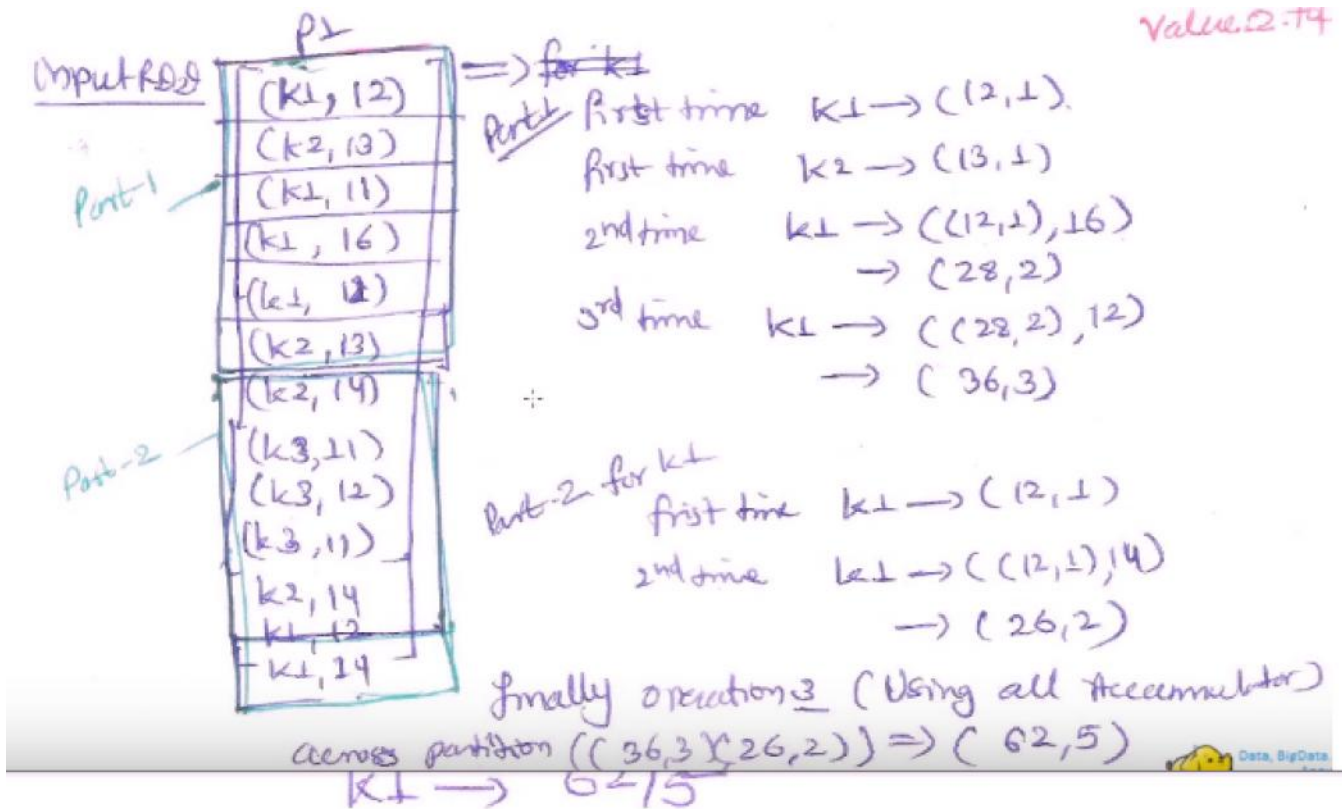 P1
Value.2.
Input RDD
(k1, 12)
(k2, 13)
(k1, 11)
(k1, 16)
(k1, 12)
(k2, 13)
(k2, 14)
(k3, 11)
(k3, 12)
(k3, 11)
k2, 14
k1, 12
k1, 14
Part-1
Part-2
=> for k1
Part1 first time k1 → (12,1).
first time k2 → (13,1)
2nd time k1 → ((12,1),16)
→ (28,2)
3rd time k1 → ((28,2),12)
→ (36,3)
Part-2 for k1
frist time k1 → (12,1)
2nd time k1 → ((12,1),14)
→ (26,2)
finally operation 3 (Using all Accumulator)
across partition ((36,3)(26,2)) => (62,5)
k1 → 62/5
Data, BigData